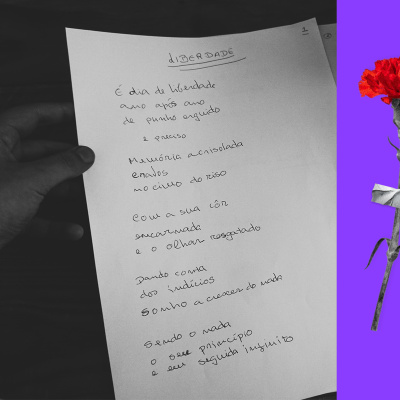 LIBERDADE
1
É dia de liberdade
ano após ano
de punho erguido
e preciso
Memória acrisolada
no cimo do riso
Com a sua côr
encarnada
e o olhar resgatado
Dando conta
dos indícios
Sonho a crescer do nada
Sendo o nada
o seu princípio
e em seguida infinito